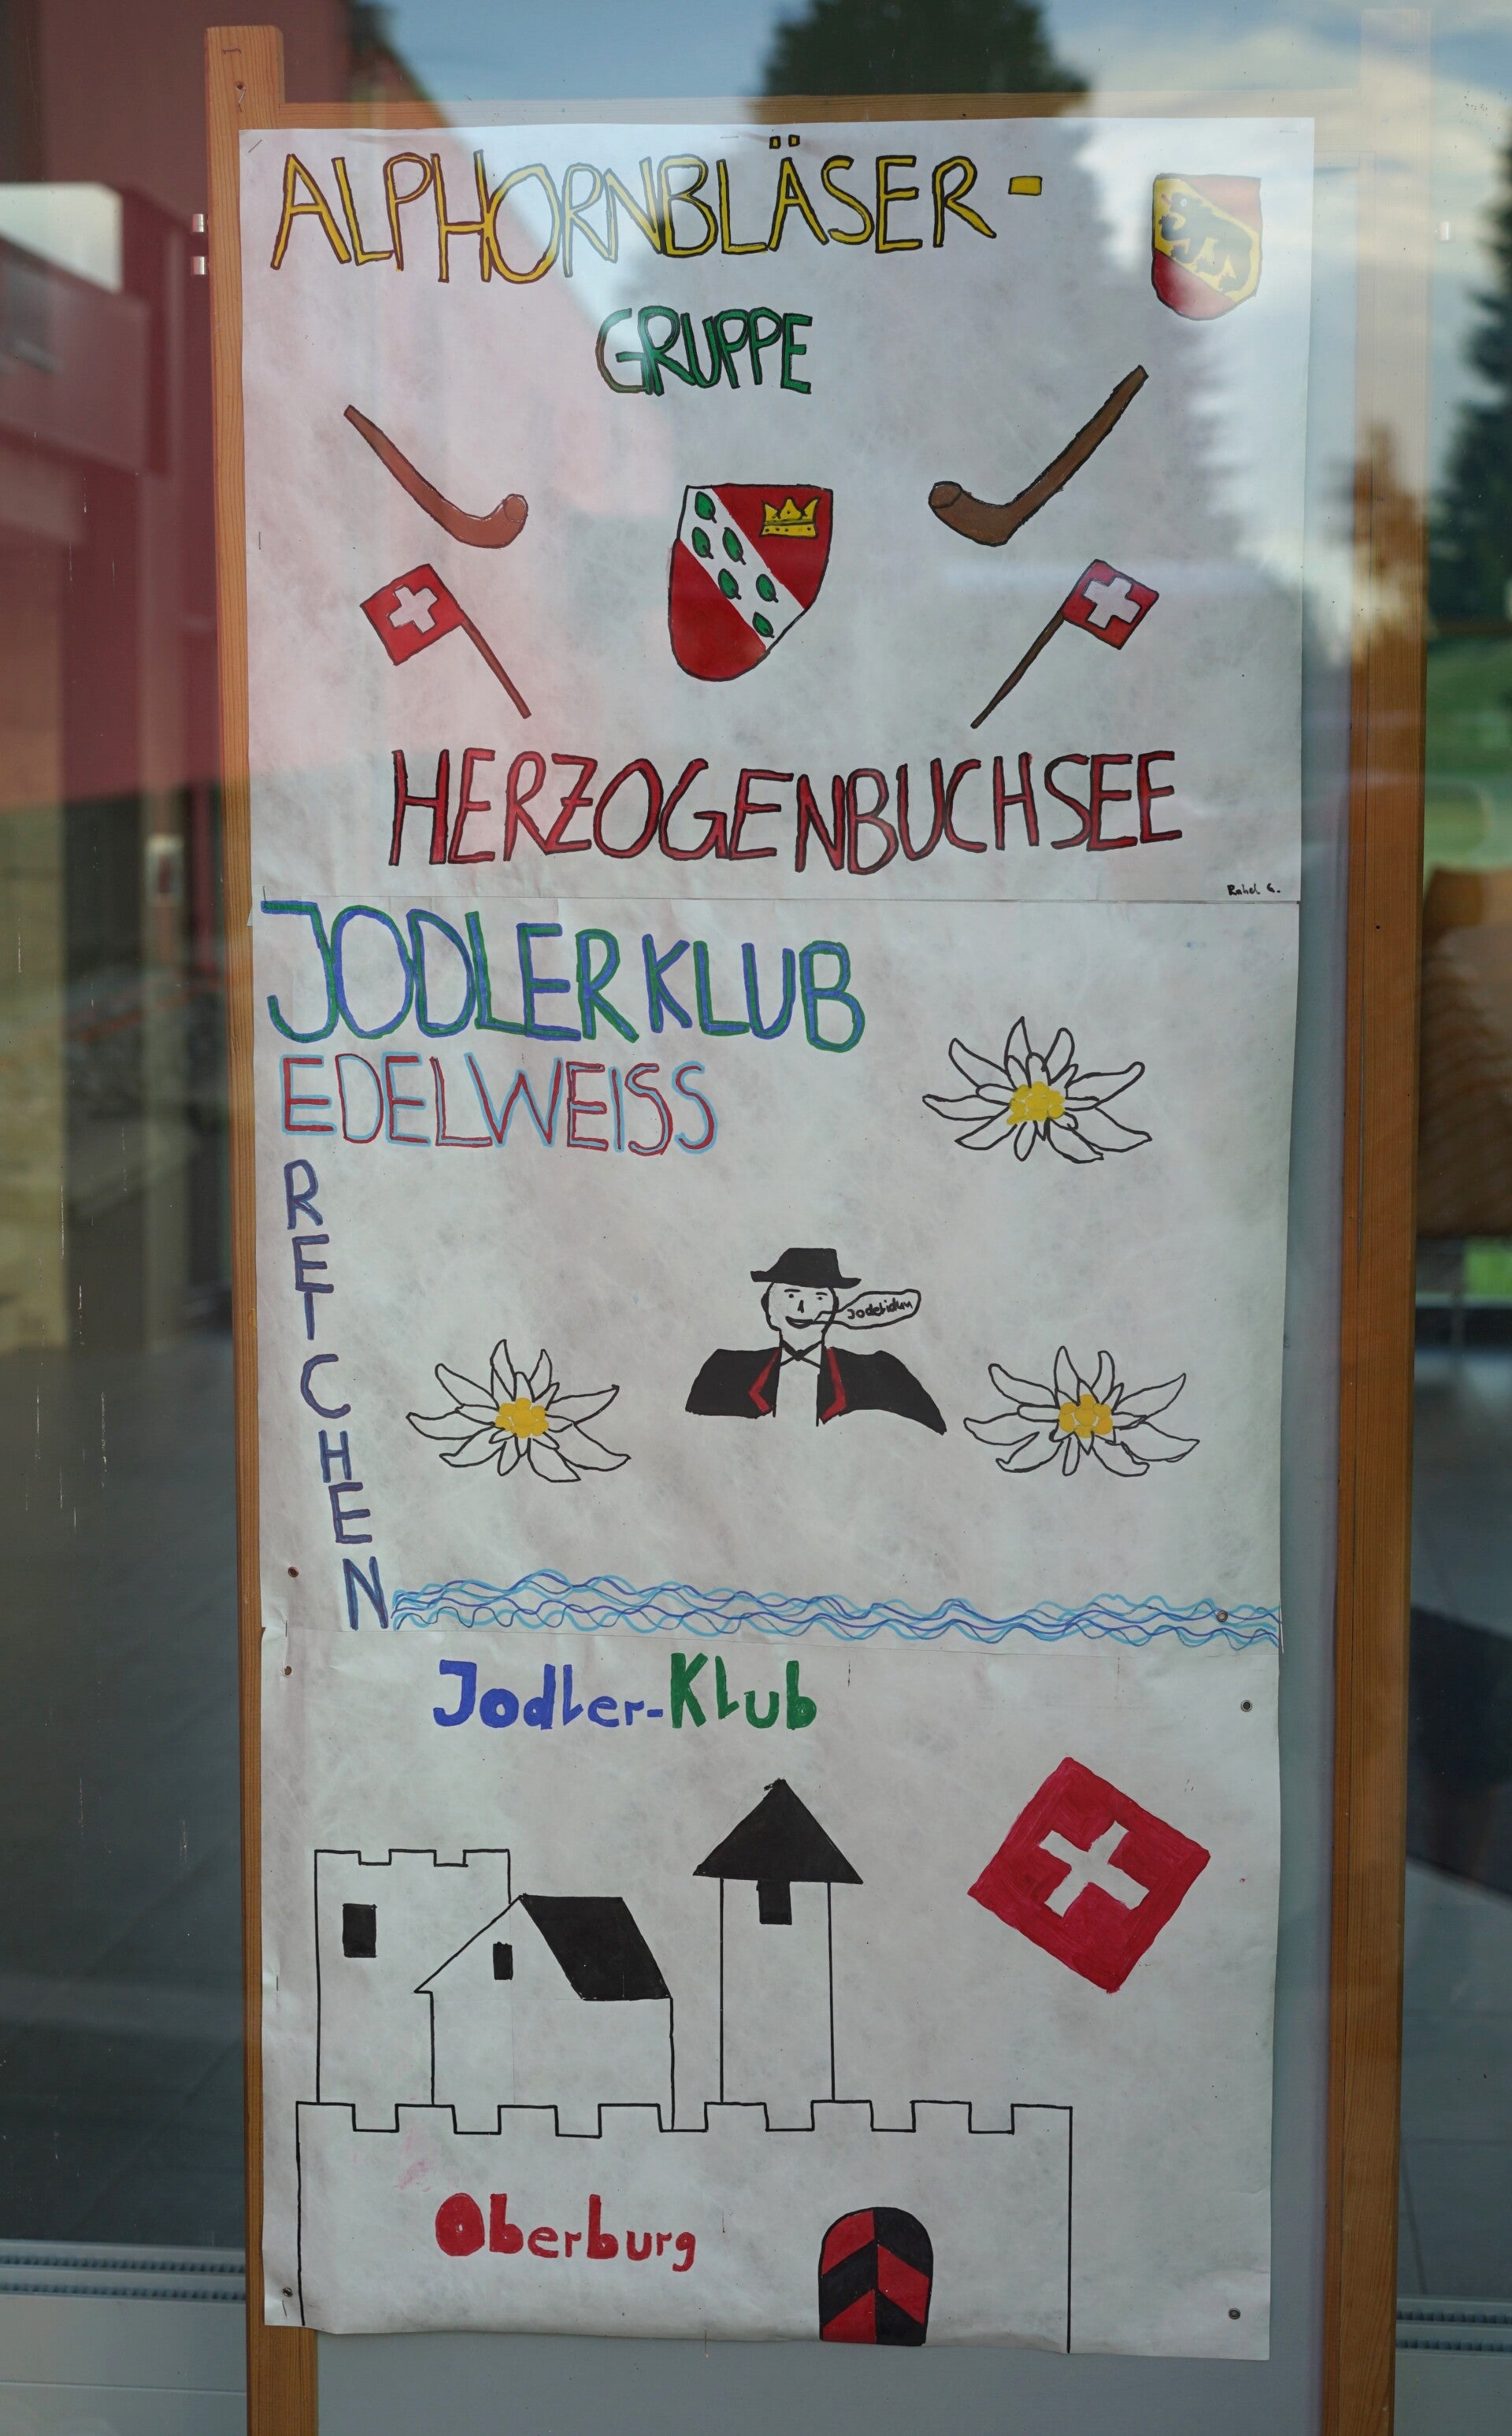 ALPHORNBLÄSER-
GRUPPE
HERZOGENBUCHSEE
Rahel G.
JODLERKLUB
EDELWEISS
REICHEN
Jodler-Klub
Oberburg